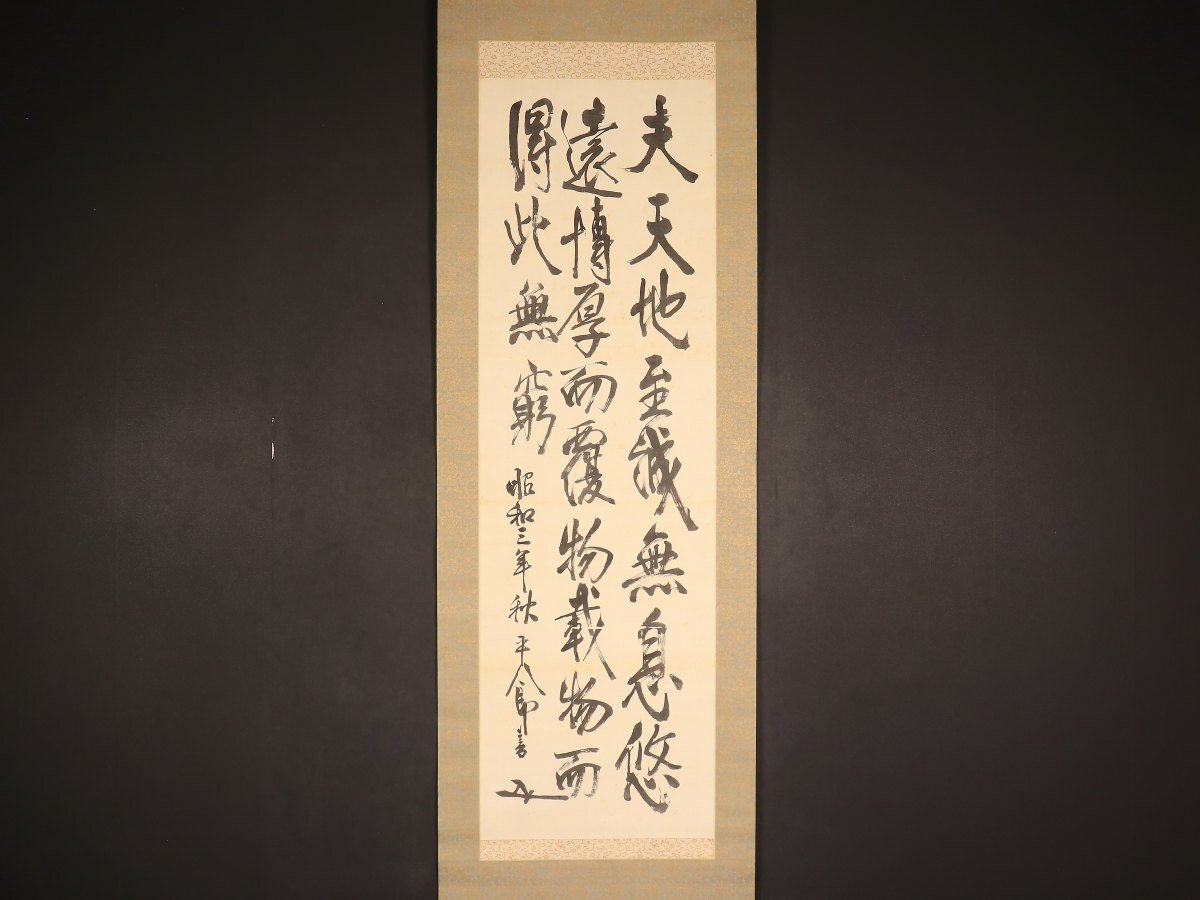 夫天地至誠無息悠
遠博厚而覆物載物而
得此無窮 昭和三年秋 平八郎書